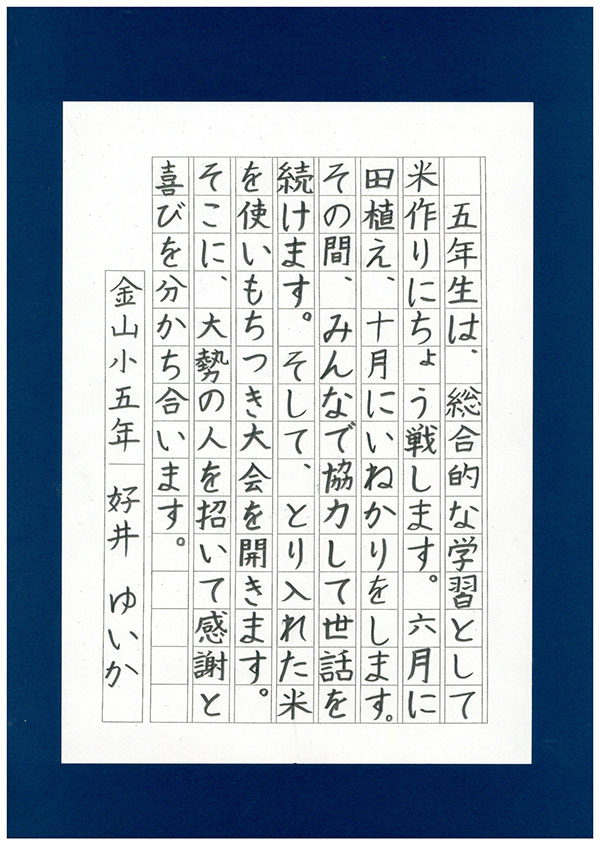 五年生は、総合的な学習として
米作りにちょう戦します。六月に
田植え、十月にいねかりをします。
その間、みんなで協力して世話を
続けます。そして、とり入れた米
を使いもちつき大会を開きます。
そこに、大勢の人を招いて感謝と
喜びを分かち合います。
金山小五年 好井 ゆいか